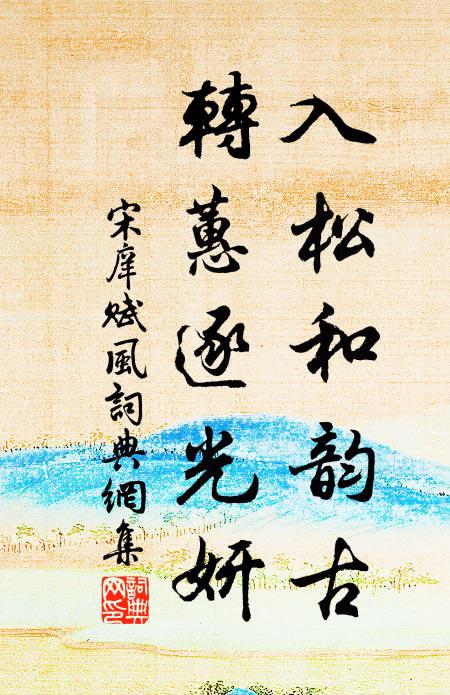 入松和韵古
轉蕙逐光妍
宋庠賦風詞典網集
詞典網印